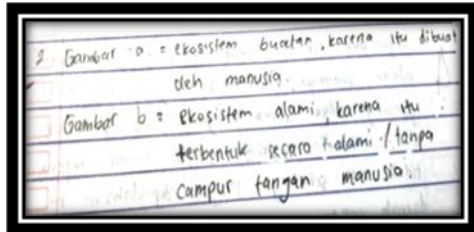 2. Gambar a = ekosistem buatan, karena itu dibuat
oleh manusia.
Gambar b = ekosistem alami, karena itu
terbentuk secara alami / tanpa
campur tangan manusia